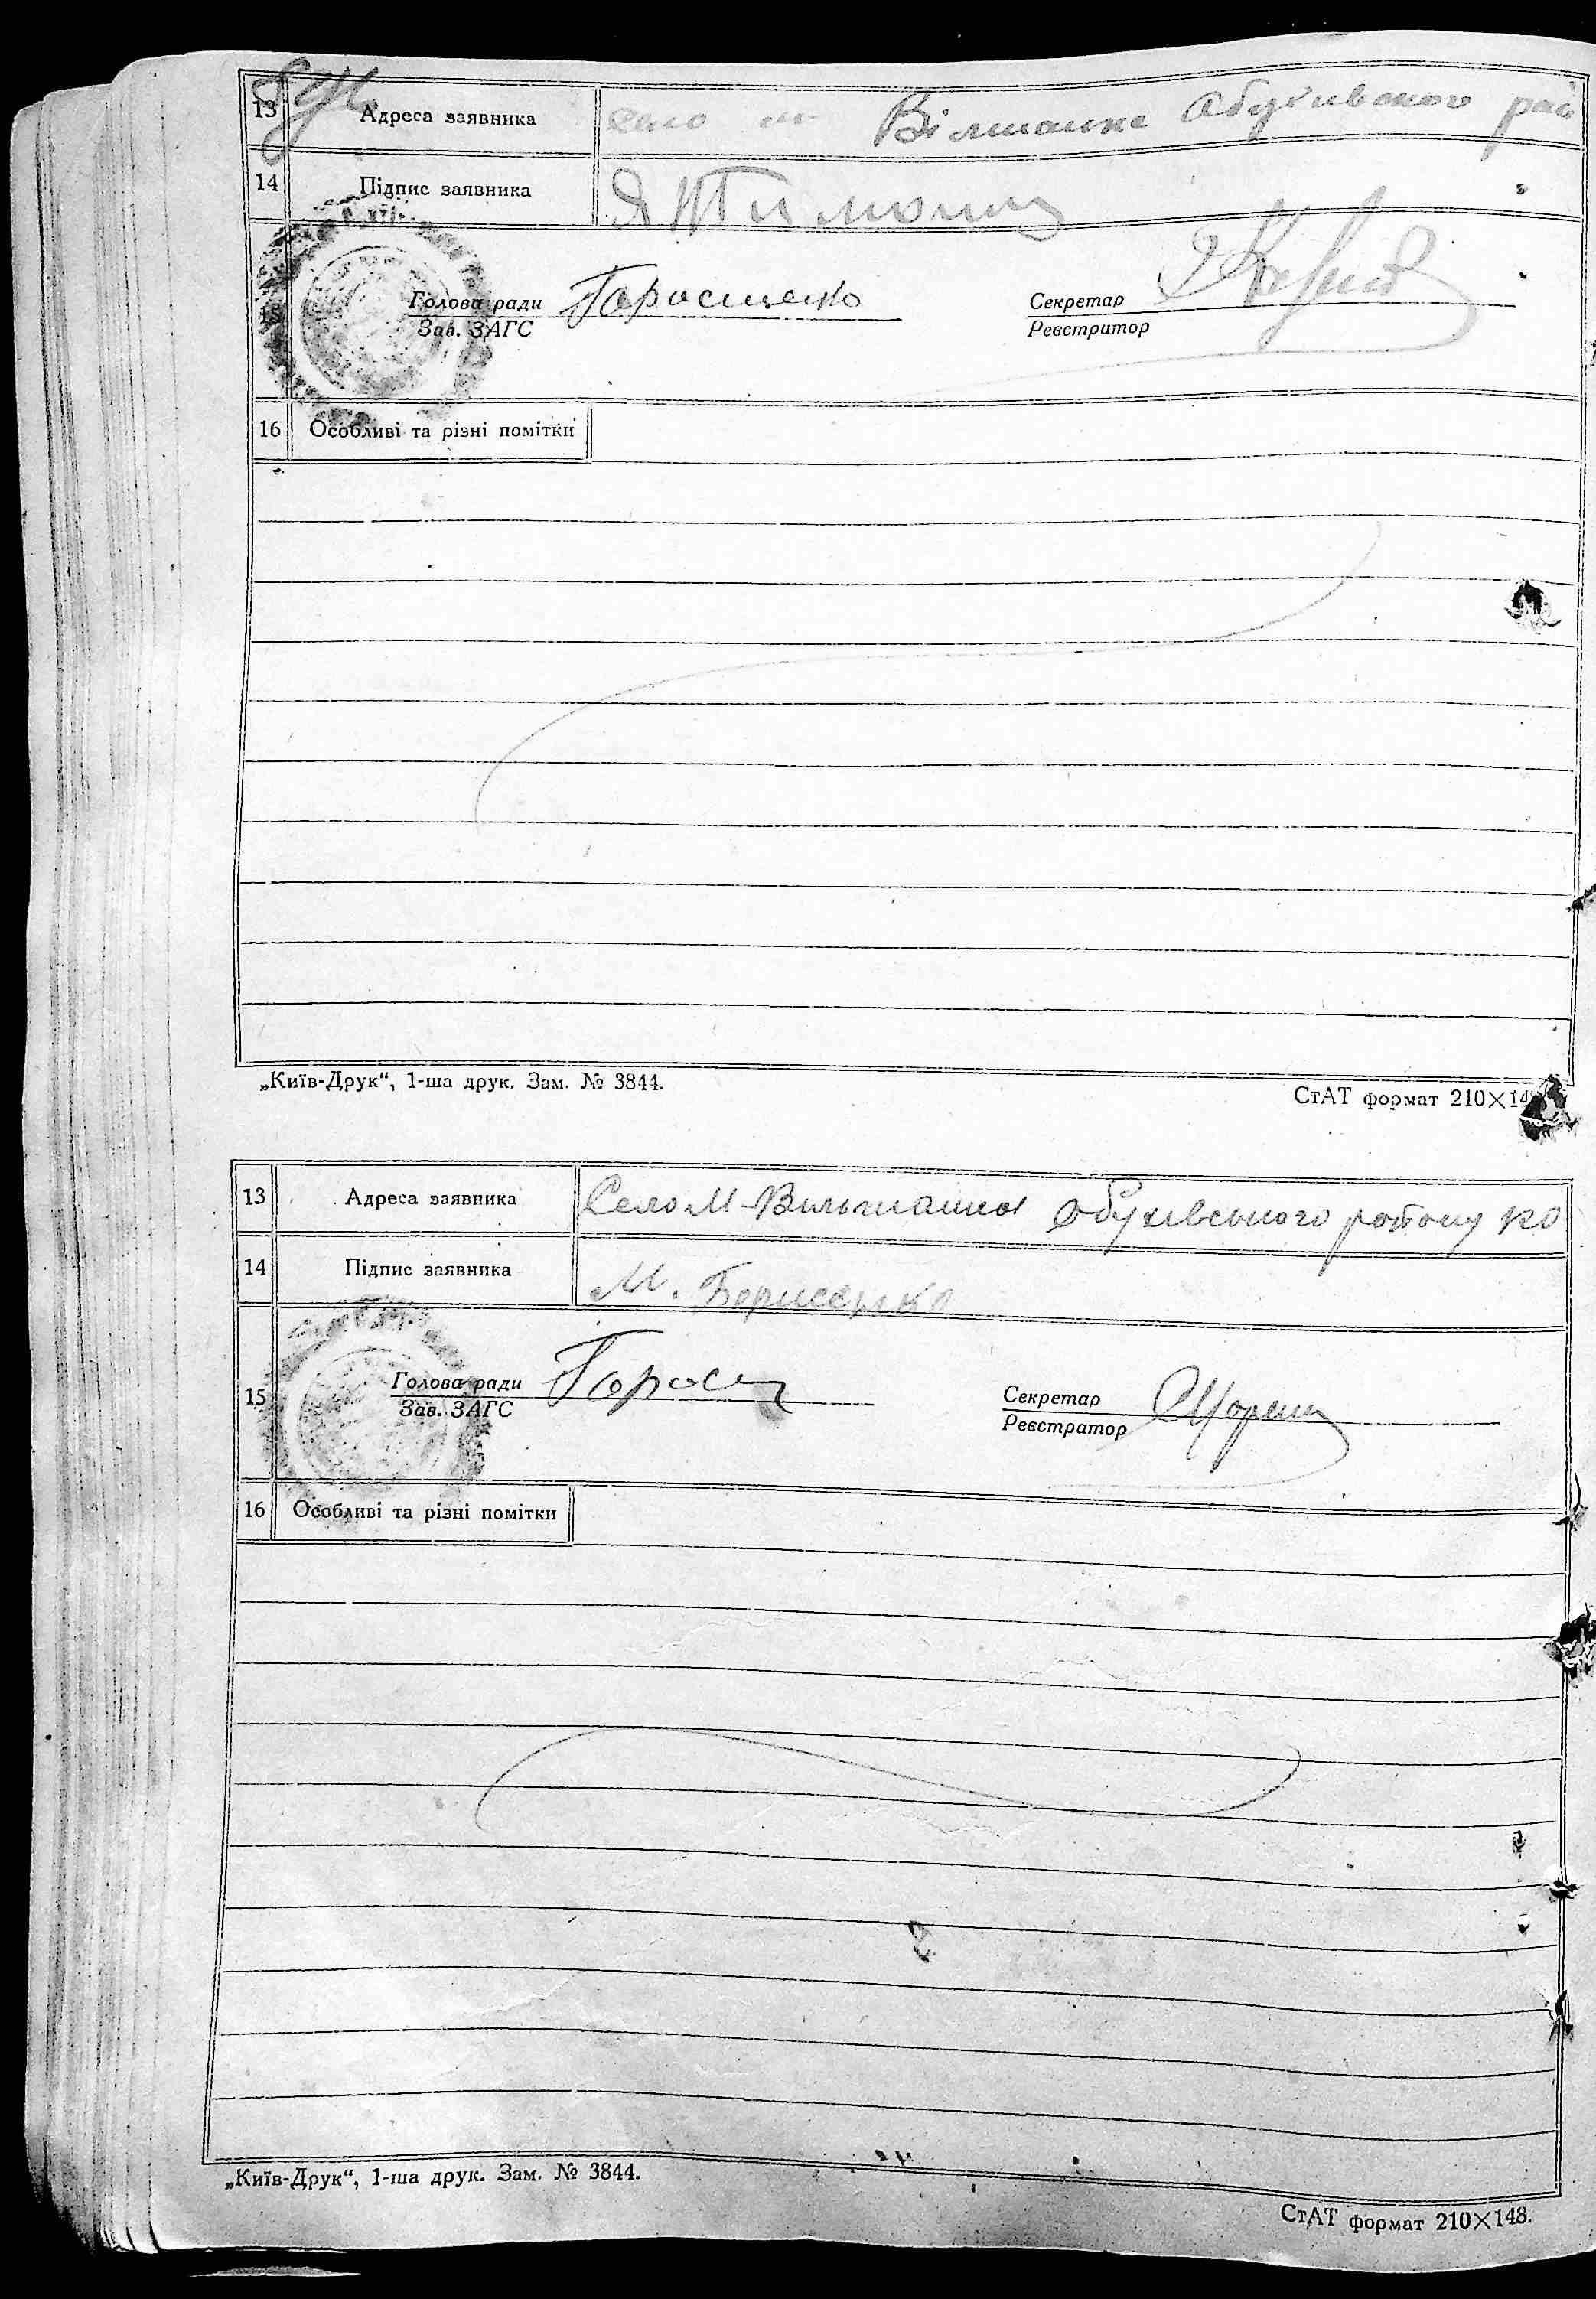 13 Адреса заявника село м Вілшанка Абухивского рай
14 Підпис заявника
15 Голова ради Гаросщенко Секретар
Зав. ЗАГС Реєстритор
16 Особливі та різні помітки
„Київ-Друк“, 1-ша друк. Зам. № 3844.
СтАТ формат 210×14
13 Адреса заявника Село М-Вильшанка Обухівського району КО
14 Підпис заявника М. Борисенко
15 Голова ради Секретар
Зав. ЗАГС Реєстратор
16 Особливі та різні помітки
„Київ-Друк“, 1-ша друк. Зам. № 3844.
СтАТ формат 210×148.